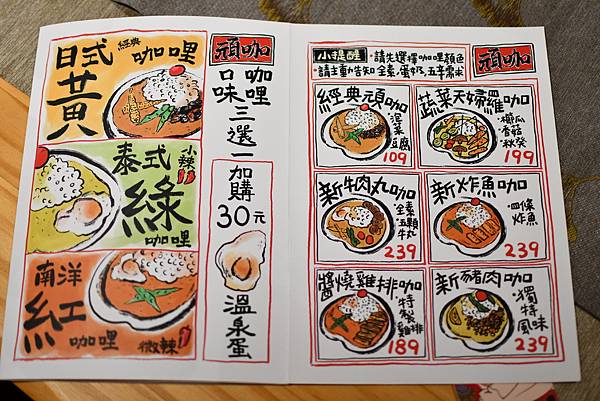 日式
經典
咖哩
黃
泰式
小辣
綠
咖哩
南洋
紅
咖哩
微辣
頑咖
咖哩
口味三選一
加購
30元
溫泉蛋
小提醒
・請先選擇咖哩顏色
・請主動告知 全素、蛋奶、五辛需求
頑咖
經典頑咖
泡菜
豆腐
109
蔬菜天婦羅咖
・櫛瓜
・香菇
・秋葵
199
新牛肉丸咖
・全素
・五顆
牛丸
239
新炸魚咖
・四條
炸魚
239
醬燒雞排咖
・特製
雞排
189
新豬肉咖
・獨特
風味
239